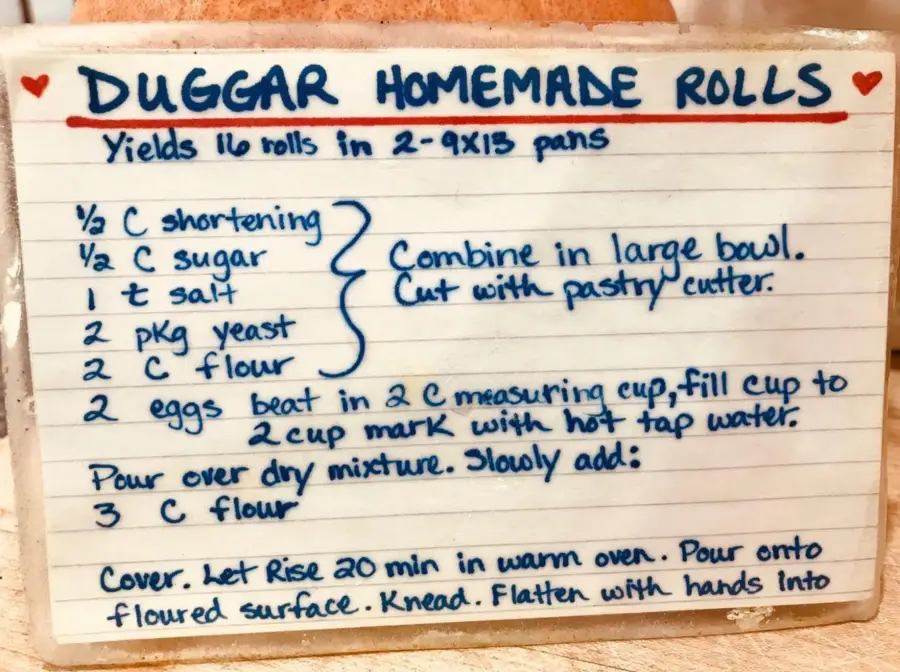 DUGGAR HOMEMADE ROLLS
Yields 16 rolls in 2-9x13 pans
½ C shortening
½ C sugar
1 t salt
2 pkg yeast
2 C flour
Combine in large bowl.
Cut with pastry cutter.
2 eggs beat in 2 C measuring cup, fill cup to
2 cup mark with hot tap water.
Pour over dry mixture. Slowly add:
3 C flour
Cover. Let Rise 20 min in warm oven. Pour onto
floured surface. Knead. Flatten with hands into